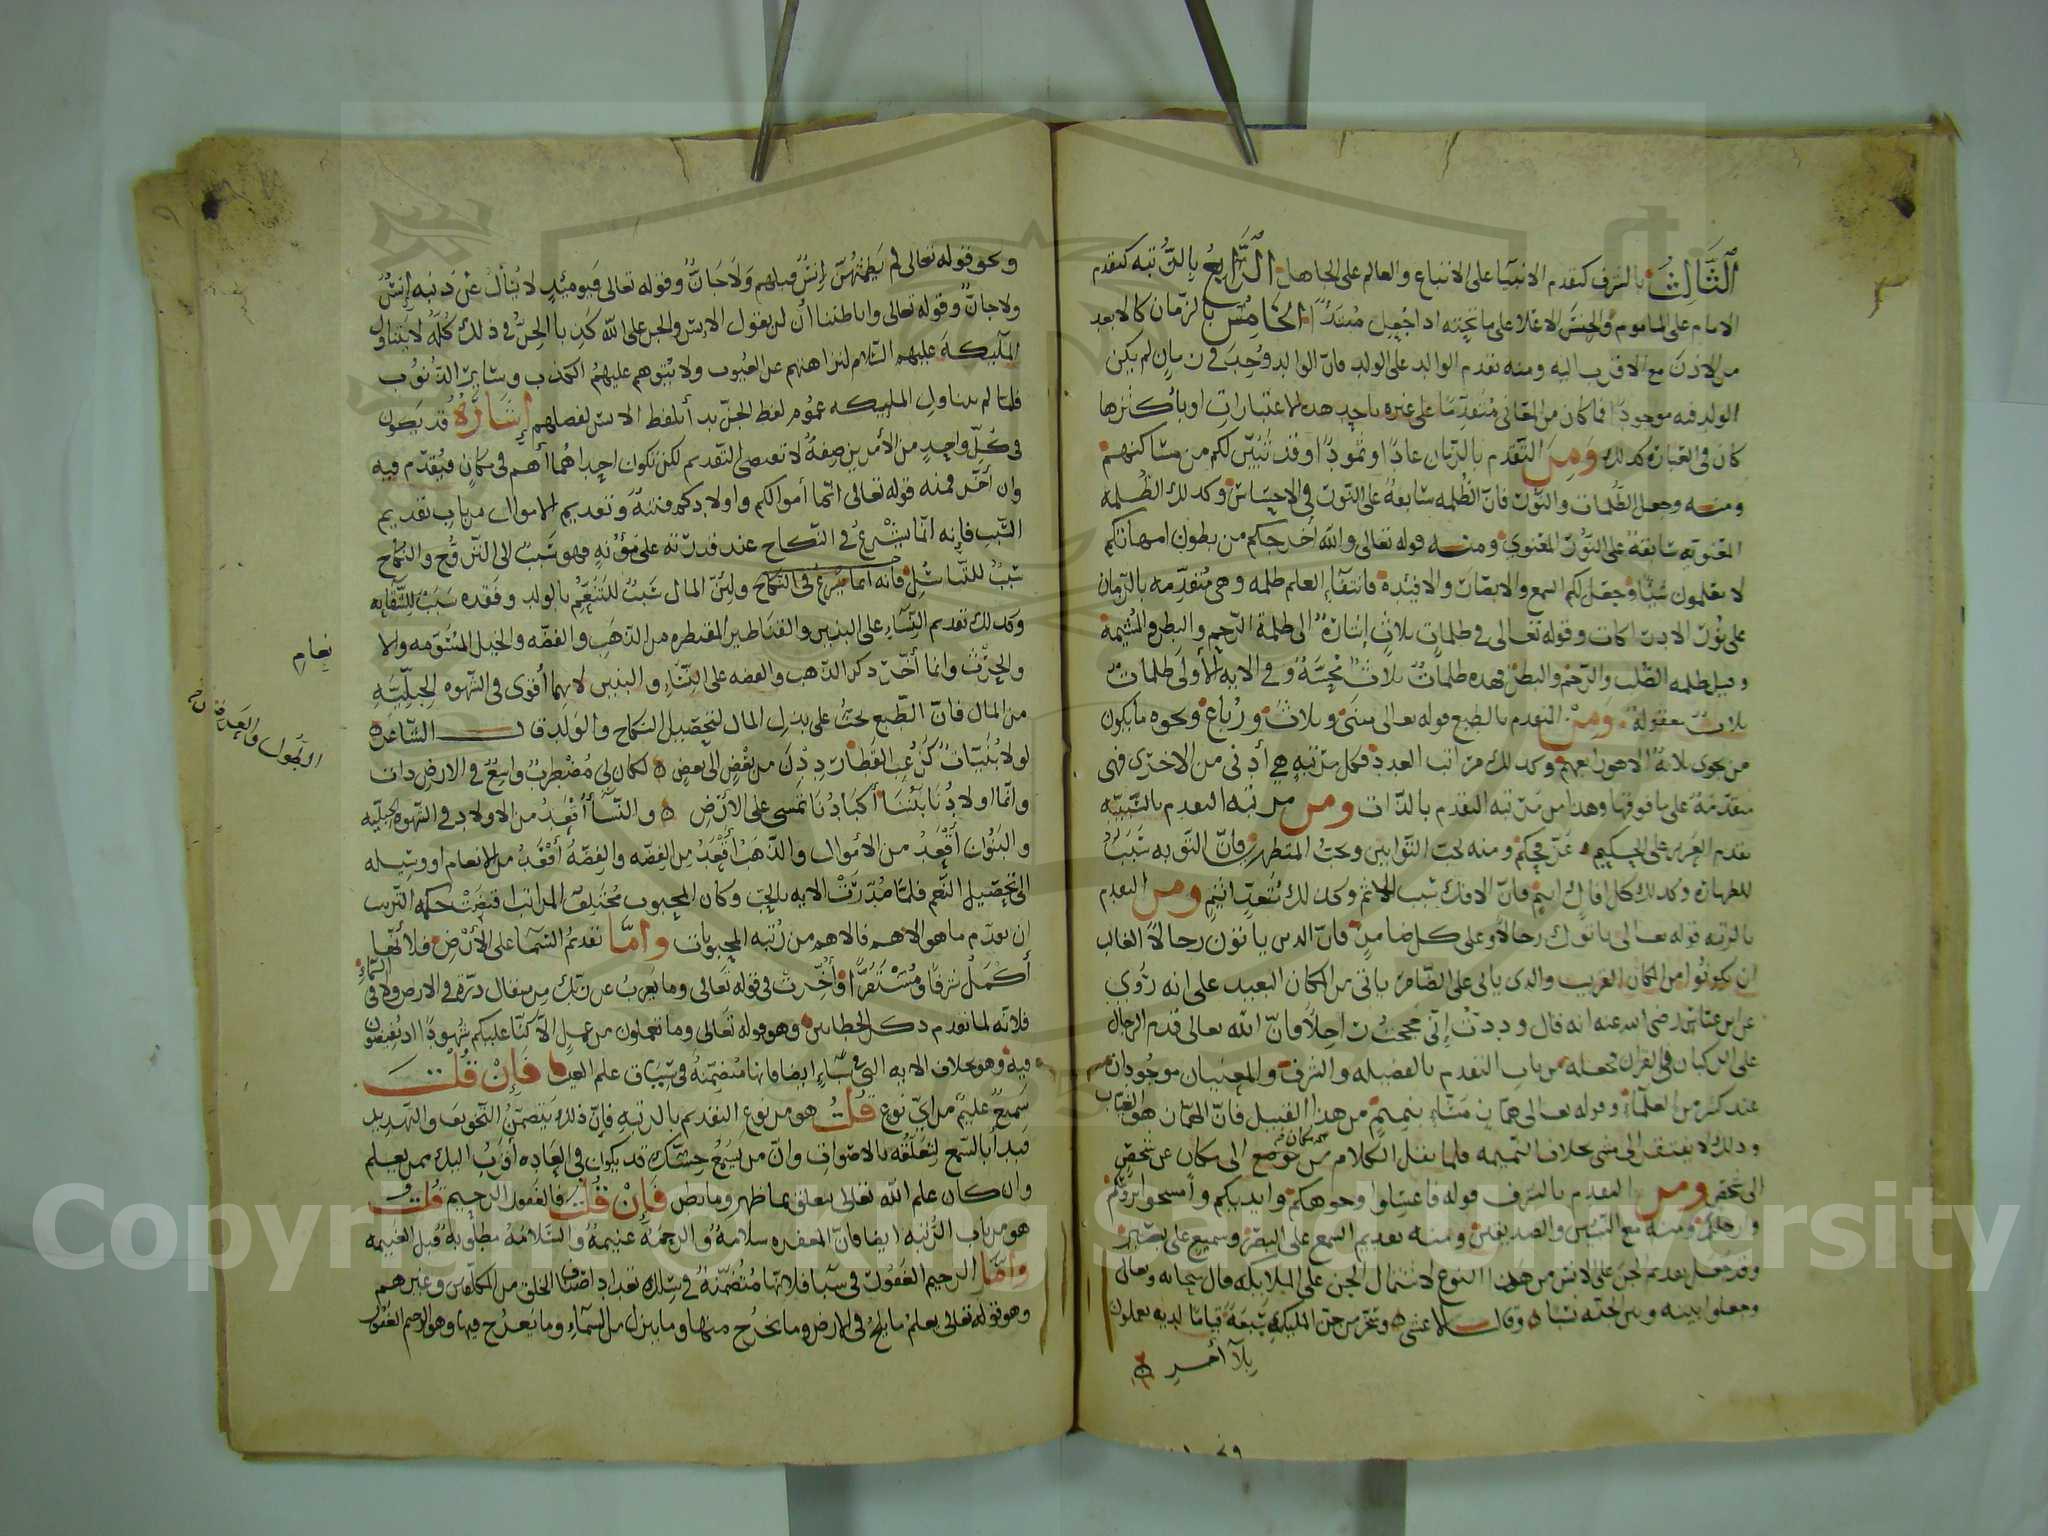 الثَّالِثُ بالشرف كتقدم الانبيآ على الاتباع والعالم على الجاهل الرَّابِعُ بالرُّتبه كتقدم
الامام على الماموم والجنس الاعلا على ما تحته اذا جعل مبتدأً الخامِسُ بالزمان كالابعد
من الاذن مع الاقرب اليه ومنه تقدم الوالد على الولد فانّ الوالد وُجِدَ في زمانٍ لم يكن
الولد فيه موجودًا فما كان من المعاني مُتقدِّمًا على غيره باحد هذه الاعتبارات او باكثرها
كان في العبارة كذلك وَمِنَ التقدم بالزمان عادًا وثمودًا وقد تبيّن لكم من مساكنهم
ومنه وجعل الظلمات والنور فانّ الظلمه سابقهٌ على النور في الاحساس وكذلك الظلمه
المعنويه سابقهٌ على النُّور المعنوي ومنه قوله تعالى والله أخرجكم من بطون امهاتكم
لا تعلمون شيًا وجعل لكم السمع والابصار والافئدة فانتفاء العلم ظلمه وهي متقدّمه بالزمان
على نُور الادراكات وقوله تعالى في ظلماتٍ ثلاثٍ إشارهٌ الى ظلمة الرَّحِم والبطن والمشيمة
وقيل ظلمه الصُّلب والرّحم والبطن فهذه ظلماتٌ ثلاثٌ محسَّةٌ وفي الايه الأولى ظلماتٌ
ثلاثٌ معقولة وَمِنْ التقدم بالطبع قوله تعالى مثنى وثلاث ورُباع ونحوه ما يكون
من نجوى ثلاثهٍ الا هو رابعهم وكذلك مراتب العدد فكل مرتبهٍ هي أدنى من الاخرى فهي
متقدّمةٌ على ما فوقها وهذا من مرتبه التقدم بالذّات ومن مرتبه التقدم بالسَّببيّه
تقدم العزيز على الحكيم عَزَّ فحكم ومنه يحب التوّابين ويحبُّ المتطهرين فانّ التوبه سَبَبُ
للطهارة وكذلك كل افّاكٍ اثيمٍ فانّ الافك سبب الاثم وكذلك مُعتدٍ اثيمٍ ومن التقدم
بالرتبه قوله تعالى ياتوك رجالًا وعلى كل ضامرٍ فانّ الذين ياتون رجالًا الغالب
ان يكونوا من المكان القريب والذي ياتي على الضامر ياتي من المكان البعيد على انه رُوي
عن ابن عبّاسٍ رضي الله عنه انه قال وددتُ إنّي حججتُ راجلًا فانّ الله تعالى قدم الرجال
على الركبان في القران فجعله من باب التقدم بالفضيله والشرف والمعنيان موجودان
عند كثير من العلمآء وقوله تعالى همّازٍ مشّاءٍ بنميمٍ من هذا القبيل فانّ الهمّاز هو العيّاب
وذلك لا يفتقر الى مشي بخلاف النميمه فانها نقل الكلام من موضع الى مكانٍ عن شخصٍ
الى شخصٍ ومن التقدم بالشرف قوله فاغسلوا وجوهكم وايديكم وامسحوا برؤسكم
وارجلكم ومنه مع النبيّين والصديقين ومنه تقديم السمع على البصر وسميعٍ على بصيرٍ
وقد جعل تقديم الجن على الانس من هذا النوع لاشتمال الجن على الملائكه قال سبحانه وتعالى
وجعلوا بينه وبين الجنّه نسبًا وقال الاعشى وسَخَّر من جِنّ الملائكِ تسعةً قيامًا لديه يعملون
بلا أجرِ
ونحو قوله تعالى لم يَطْمِثْهُنَّ إنسٌ قبلهم وَلَا جَانٌّ وقوله تعالى فيومئذٍ لا يُسألُ عَن ذَنبه إنسٌ
ولا جانٌّ وقوله تعالى وانا ظننا أن لن يقول الانس والجن على الله كَذِبا الجِنُّ في ذلك كُلّه لا يتناول
الملَيكةَ عليهم السلام لنزاهتهم عن العيوب ولا يُتوهم عليهمُ الكذب وسَايرُ الذُنوُب
فلمّا لم يتناول المليكه عموُم لفظ الجنّ بدأ بلفظ الانس لفضلهم إشَارَةٌ قد يَكون
في كُلّ واحِدٍ من الأمرين صِفةٌ لا تقتضي التقديم لكن تكون احِداهُما أهم في مكانٍ فيُقدّم فيه
وان أخّر فمنه قوله تعالى انّما أموالكم واولادكم فتنةٌ وتقديم الاموال من باب تقديم
السَّبب فإنه انّما يُشرعُ في النكاح عند قدرته على مُؤنهٍ فهو سَببٌ الى التزوُّج والنكاح
سَببٌ للتّناسُلِ فانه انما يشرع في النكاح ولئنّ المال سَببٌ للتنعُّم بالولد وفَقده سَببٌ للشَّقائه
وكذلك تقديم النِّسَاءِ على البنين والقناطير المقنطره من الذَّهَب والفضّه والخيل المسوّمه والا
نعام
والحرث وانما أخّر ذكر الذَّهب والفضه على النِّسَاءِ والبنين لانهما أقوى في الشّهوه الجِبلّيّه
من المال فانّ الطَّبع يحثُّ على بذلِ المال لتحصيل النكاح والولد قال الشاعر
لولا بُنَيّاتٌ كَزُغبِ القَطَا رُدِدْنَ من بَعْضٍ الى بعضِ لكان لي مُضْطربٌ واسعٌ في الارض ذات
الطُّول والعَرْض
وانّما اولادُنا بَيْننَا أكبَادُنَا تَمشي على الأَرْضِ والنسَاء أُقْعَدُ من الاولاد في الشهوه الجبليّه
والبَنُوْن أَقْعَدُ من الأموال والذّهَبُ أَقْعَدُ من الفضّه والفِضّهُ أَقْعَدُ من الانعام اذ وسيله
الى تحصيل النَّعم فلمّا صُدّرتْ الايه بالحبِّ وكان المحبوب مُختلِفَ المراتب اقتضَتْ حكمه الترتيب
ان يقدّم ما هو الاهم فالاهم من رُتبه المحبوبات وامّا تقديمُ السَّما على الأَرْض فلأنّها
أكْمَلُ شرفًا ومُسْتَقَرًّا وأُخِّرت في قوله تعَالى وما يَعزبُ عن ربّك مِن مثقال ذرّة في الارض ولا في السماءِ
فلانّه لما تقدم ذكر المخاطبين وهو قوله تعَالى وما تعملون من عملٍ الّا كنّا عليكم شُهودًا اذ تُفيضون
فيه وهو بخلاف الايه التي في سَبأٍ ايضا فانها مُتضمّنةٌ في سيَاق علم الغيب فَإنْ قُلتَ
سَميعٌ عليمٌ من ايّ نوعٍ قُلتُ هو من نوع التقدم بالرتبهِ فإنّ ذلك يَتضمّنُ التّخويفَ والتّهديد
فبدأ بالسّمع لتعلّقه بالاصوات وانّ من يسمع حِسّك قد يكون في العَاده أقربُ اليك ممن يعلم
وان كان علم الله تعالى يتعلق بما ظهر وما بطن فَإنْ قُلتَ فالغفور الرحيم قُلتُ
هو من باب الرُّتبه ايضا فانّ المغفره سلامةٌ والرحمةُ غنيمةٌ والسّلامةُ مطلوبةٌ قبل الغنيمه
وامّا الرحيم الغَفورُ في سَبأ فلانها مُتضمّنةٌ في سِلك تعداد اصنَاف الخلق من المكلّفين وغيرهم
وهو قوله تعالى يعلم ما يلج في الارض وما يخرج منها وما ينزل من السمآءِ وما يَعرج فيها وهو الرحيم الغفور
Copyright © King Saud University